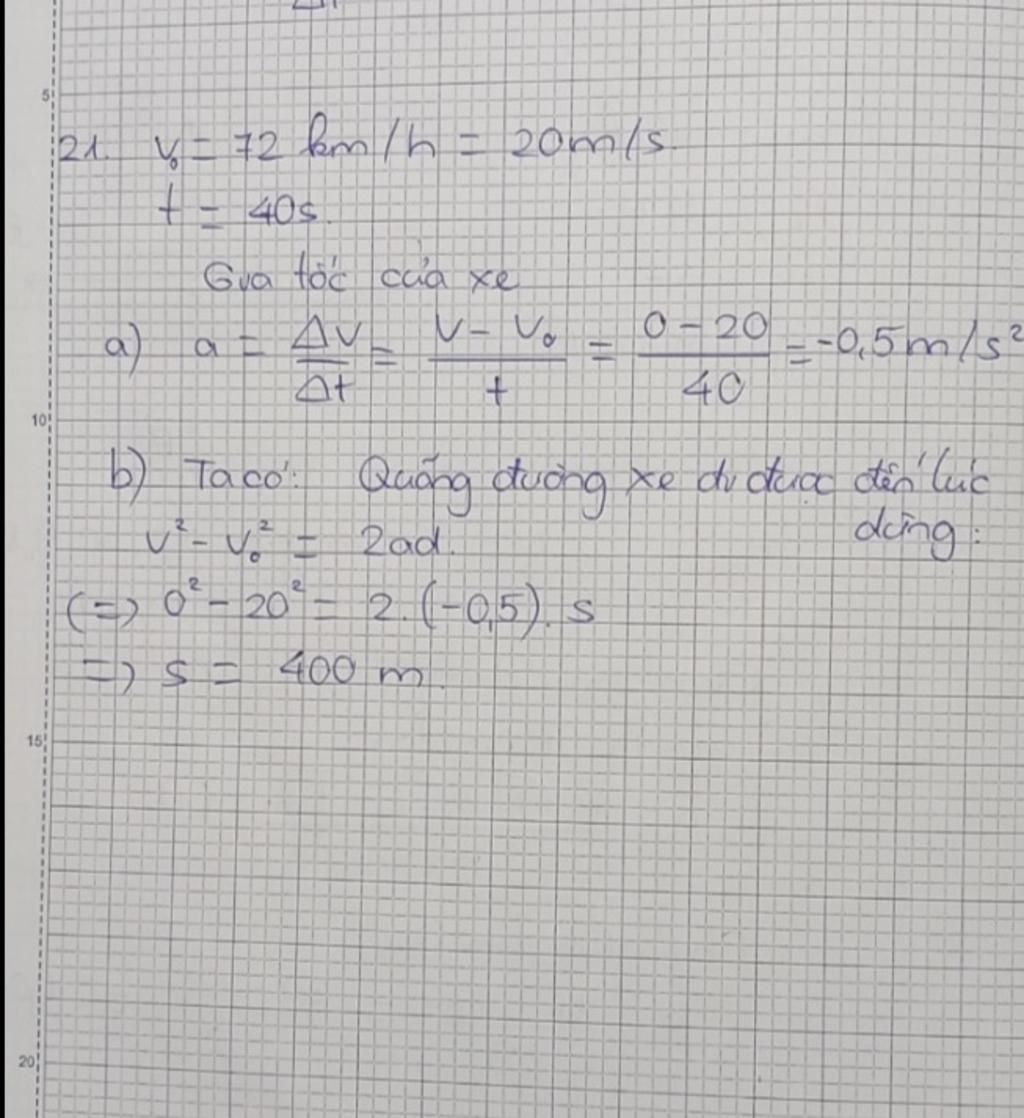 5
21. v₀ = 72 km/h = 20m/s.
t = 40s.
Gia tốc của xe
a) a = Δv/Δt = (v - v₀)/t = (0 - 20)/40 = -0,5 m/s²
10
b) Ta có: Quãng đường xe đi được đến lúc
dừng:
v² - v₀² = 2ad.
(=) 0² - 20² = 2.(-0,5). s
=) s = 400 m.
15
20